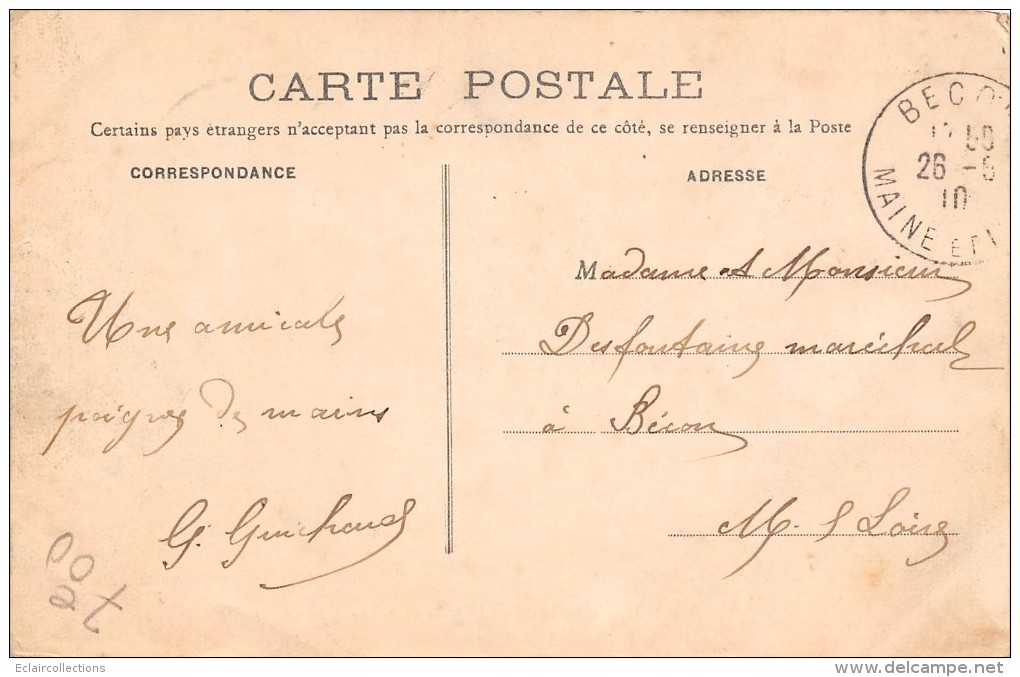 CARTE POSTALE
Certains pays étrangers n'acceptant pas la correspondance de ce côté, se renseigner à la Poste
CORRESPONDANCE
ADRESSE
BECO
26 -5
10
MAINE ET L
Une amicale
poignée de mains
G. Guichard
Madame et Monsieur
Desfontaine maréchal
à Bécon
M. & Loire
Eclaircollections
www.delcampe.net